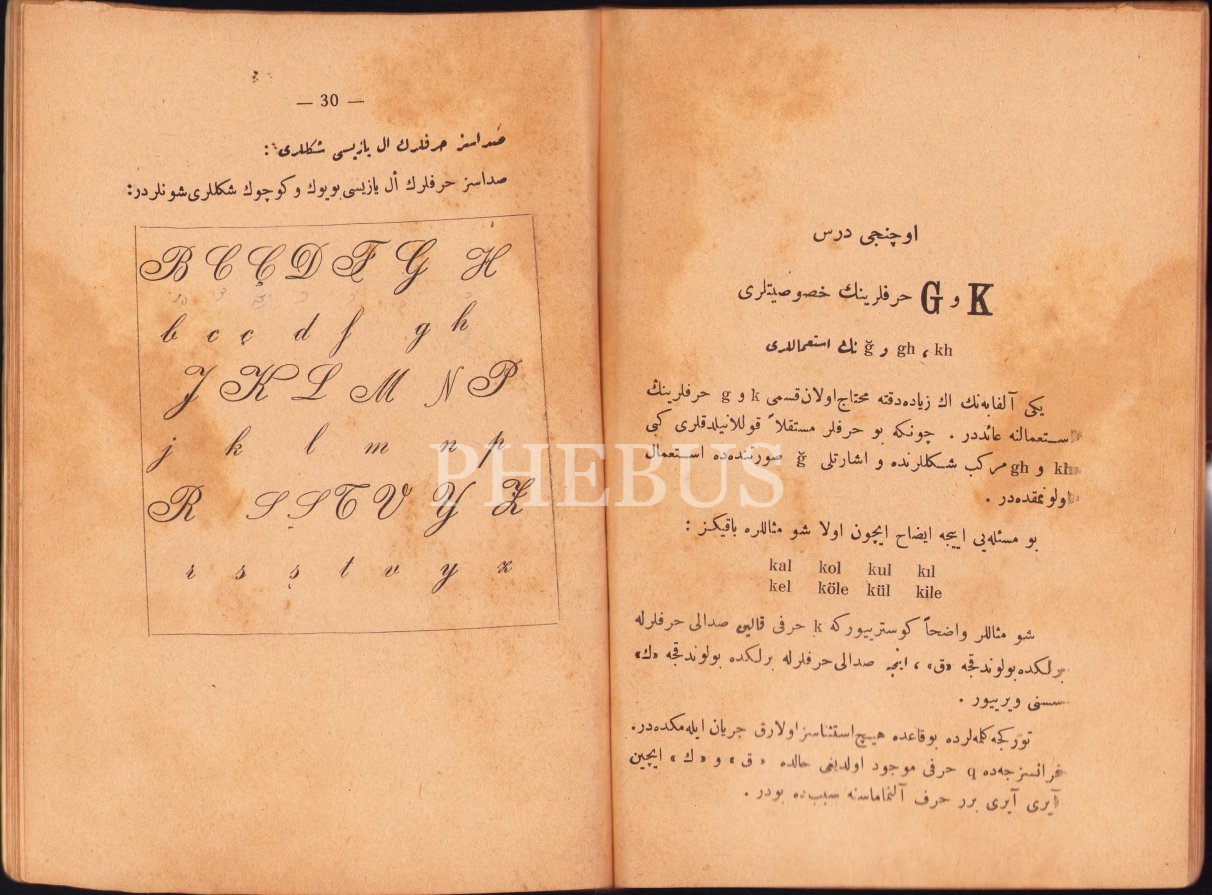 — 30 —
صداسز حرفلرك ال يازيسى شكللرى :
صداسز حرفلرك أل يازيسى بويوك و كوچوك شكللرى شونلردر:
B C Ç D F G H
b c ç d f g h
J K L M N P
j k l m n p
R S Ş T V Y Z
r s ş t v y z
اوچنجى درس
K و G حرفلرينك خصوصيتلرى
kh ، gh و ğ نك استعماللرى
يكى آلفابه‌نك اك زياده دقته محتاج اولان قسمى k و g حرفلرينك
استعمالنه عائددر . چونكه بو حرفلر مستقلاً قوللانيلدقلرى كبى
kh و gh مركب شكللرنده و اشارتلى ğ صورتنده‌ده استعمال
اولونمقده‌در .
بو مسئله‌يى اييجه ايضاح ايچون اولا شو مثاللره باقيكز :
kal kol kul kıl
kel köle kül kile
شو مثاللر واضحاً كوستريیوركه k حرفى قالين صدالى حرفلرله
برلكده بولوندقجه «ق» ، اينجه صدالى حرفلرله برلكده بولوندقجه «ك»
سسنى ويرييور .
توركجه كلمه‌لرده بو قاعده هيچ استثناسز اولارق جريان ايله‌مكده‌در.
فرانسزجه‌ده q حرفى موجود اولديغى حالده « ق » و « ك » ايچين
آيرى آيرى برر حرف آلنماماسنه سبب ده بودر .
PHEBUS